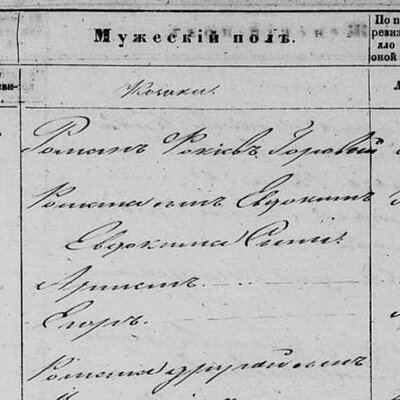 Мужескій полъ.
По п
ревиз
яло
оной
Козаки.
Романъ Фокіевъ Горовый
Романа сынъ Евдокимъ
Евдокима Сыны:
Архипъ
Егоръ.
Романа другой сынъ